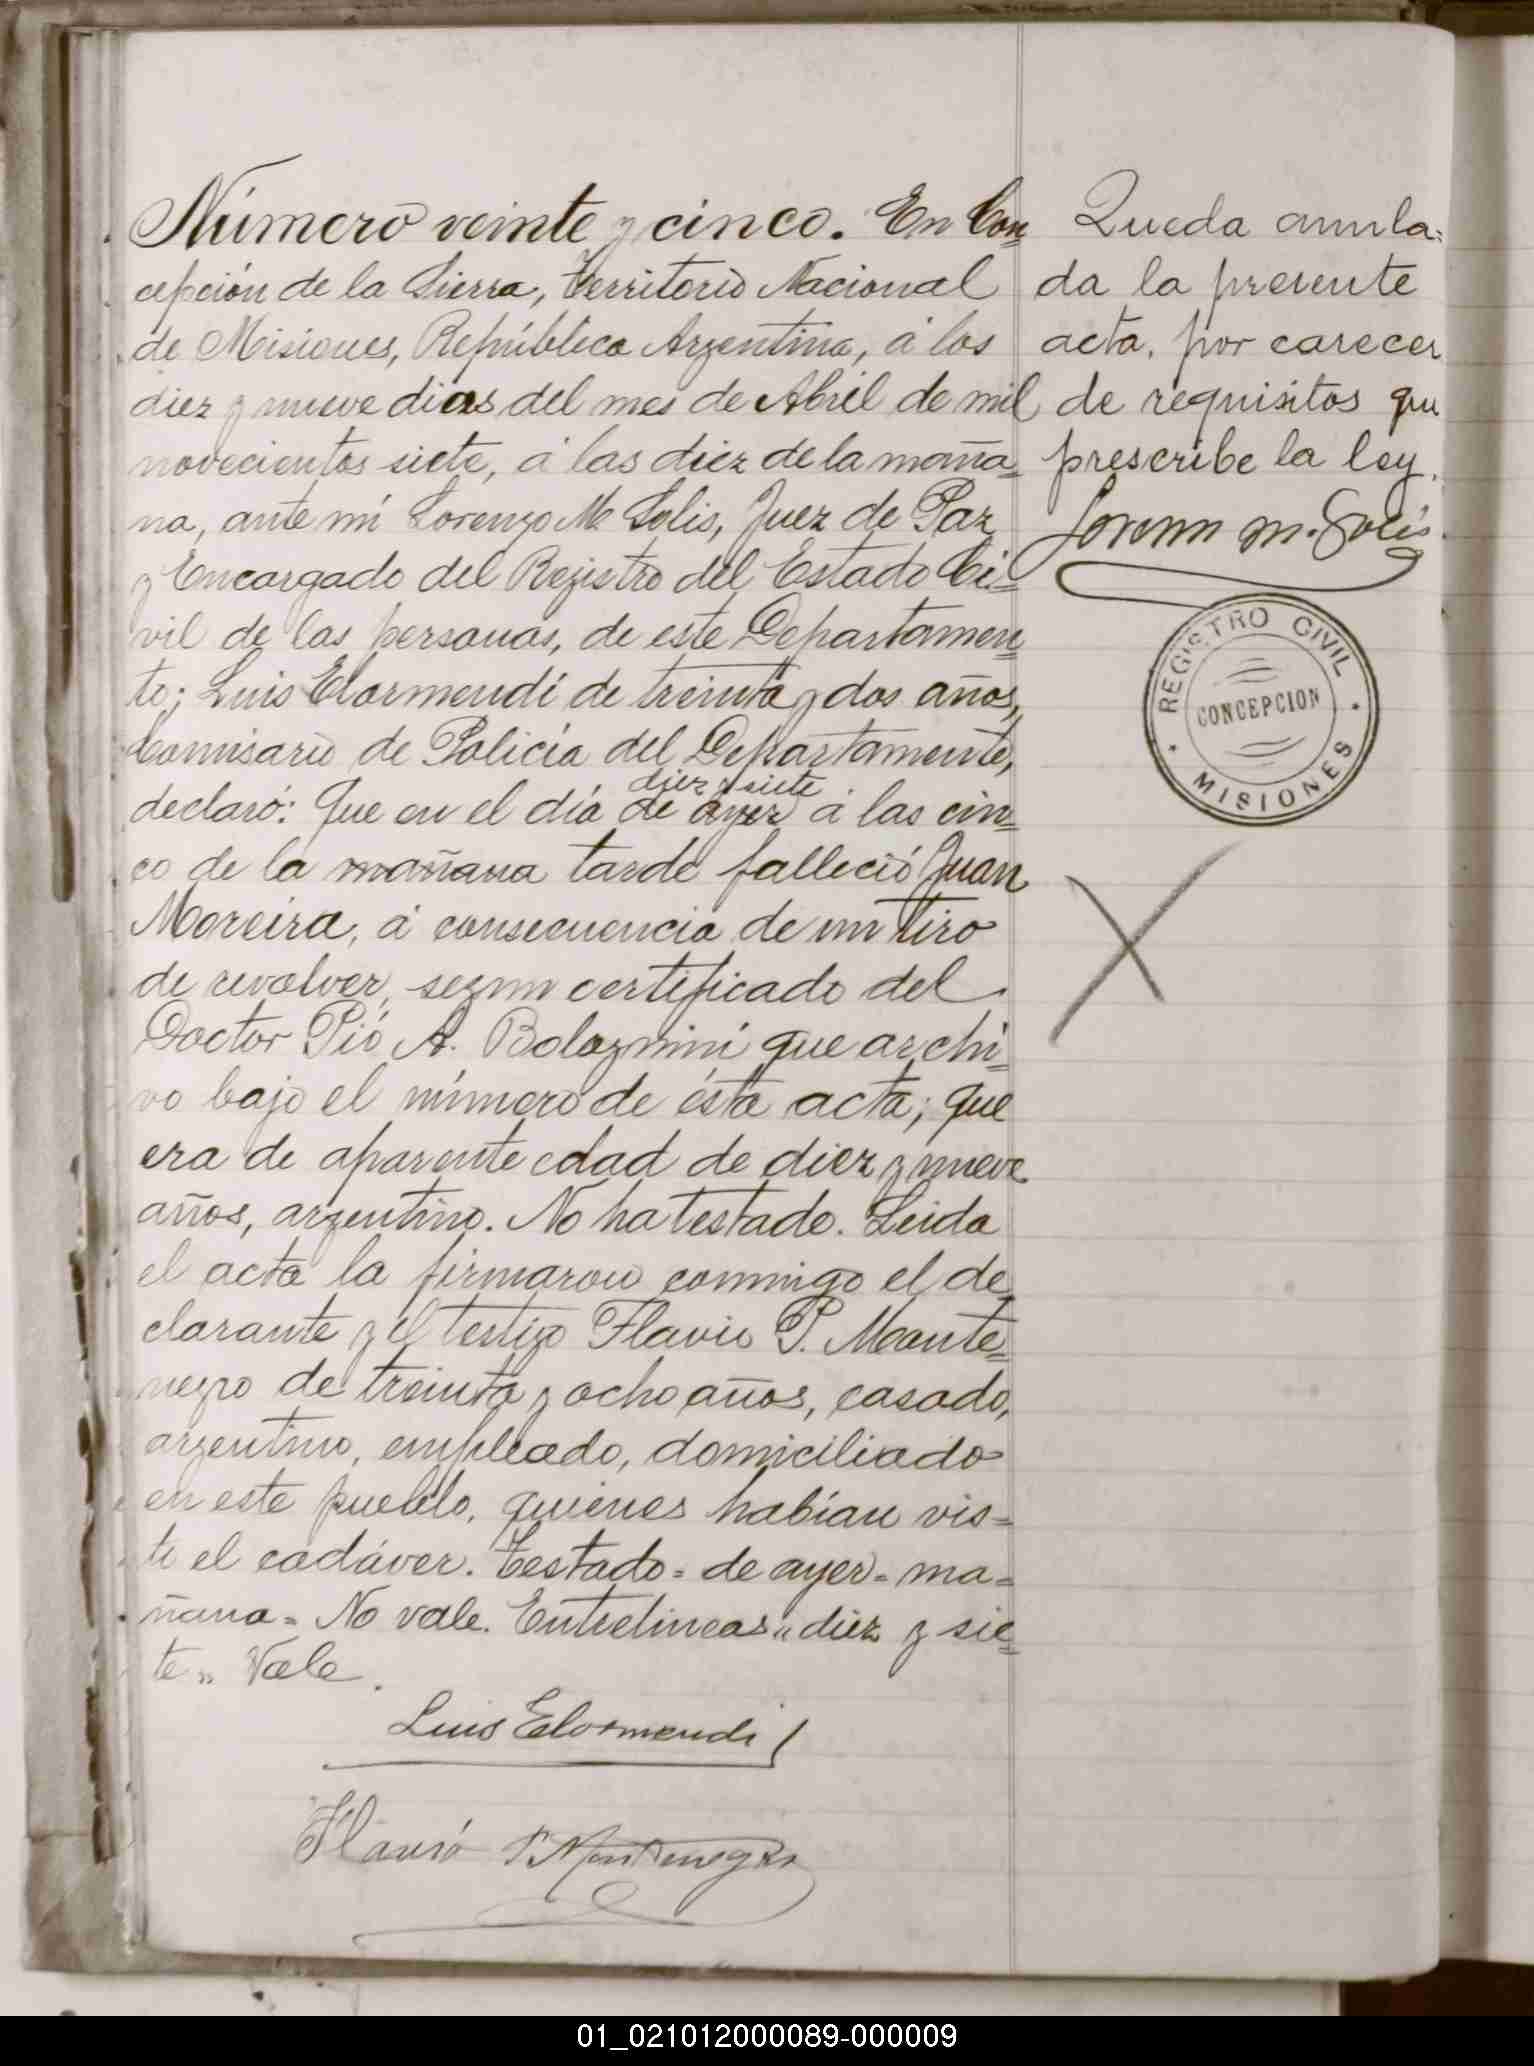 Número veinte y cinco. En Con
cepción de la Sierra, Territorio Nacional
de Misiones, República Argentina, á los
diez y nueve dias del mes de Abril de mil
novecientos siete, á las diez de la maña=
na, ante mí Lorenzo M. Solis, Juez de Paz
y Encargado del Registro del Estado Ci=
vil de las personas, de este Departamen=
to; Luis Elormendi de treinta y dos años,
Comisario de Policía del Departamento,
diez y siete
declaró: Que en el día de ayer á las cin=
co de la mañana tarde falleció Juan
Moreira, á consecuencia de un tiro
de revolver, segun certificado del
Doctor Pió A. Bolognini que archi=
vo bajo el número de ésta acta; que
era de aparente edad de diez y nueve
años, argentino. No ha testado. Leida
el acta la firmaron conmigo el de
clarante y el testigo Flavio P. Monte=
negro de treinta y ocho años, casado,
argentino, empleado, domiciliado
en este pueblo, quienes habían vis=
to el cadáver. Testado = de ayer = ma=
ñana = No vale. Entrelineas „ diez y sie=
te „ Vale.
Luis Elormendi
Flavió P. Montenegro
Queda anula=
da la presente
acta, por carecer
de requisitos que
prescribe la ley.
Lorenzo M. Solis
REGISTRO CIVIL
CONCEPCION
MISIONES
01_021012000089-000009